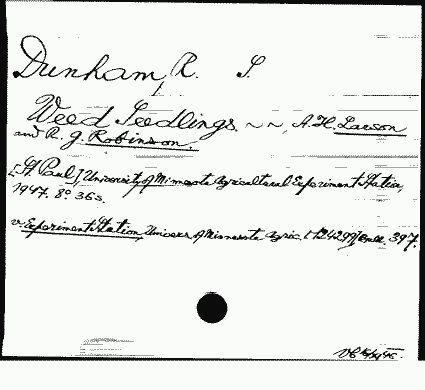 Dunham, R. S.
Weed Seedlings. ~ ~, A. H. Larson
and R. G. Robinson.
[St Paul], University of Minnesota Agricultural Experiment Station,
1947. 8º. 36s.
v. Experiment Station, Univers. of Minnesota Agric. [12429] Bull. 397.